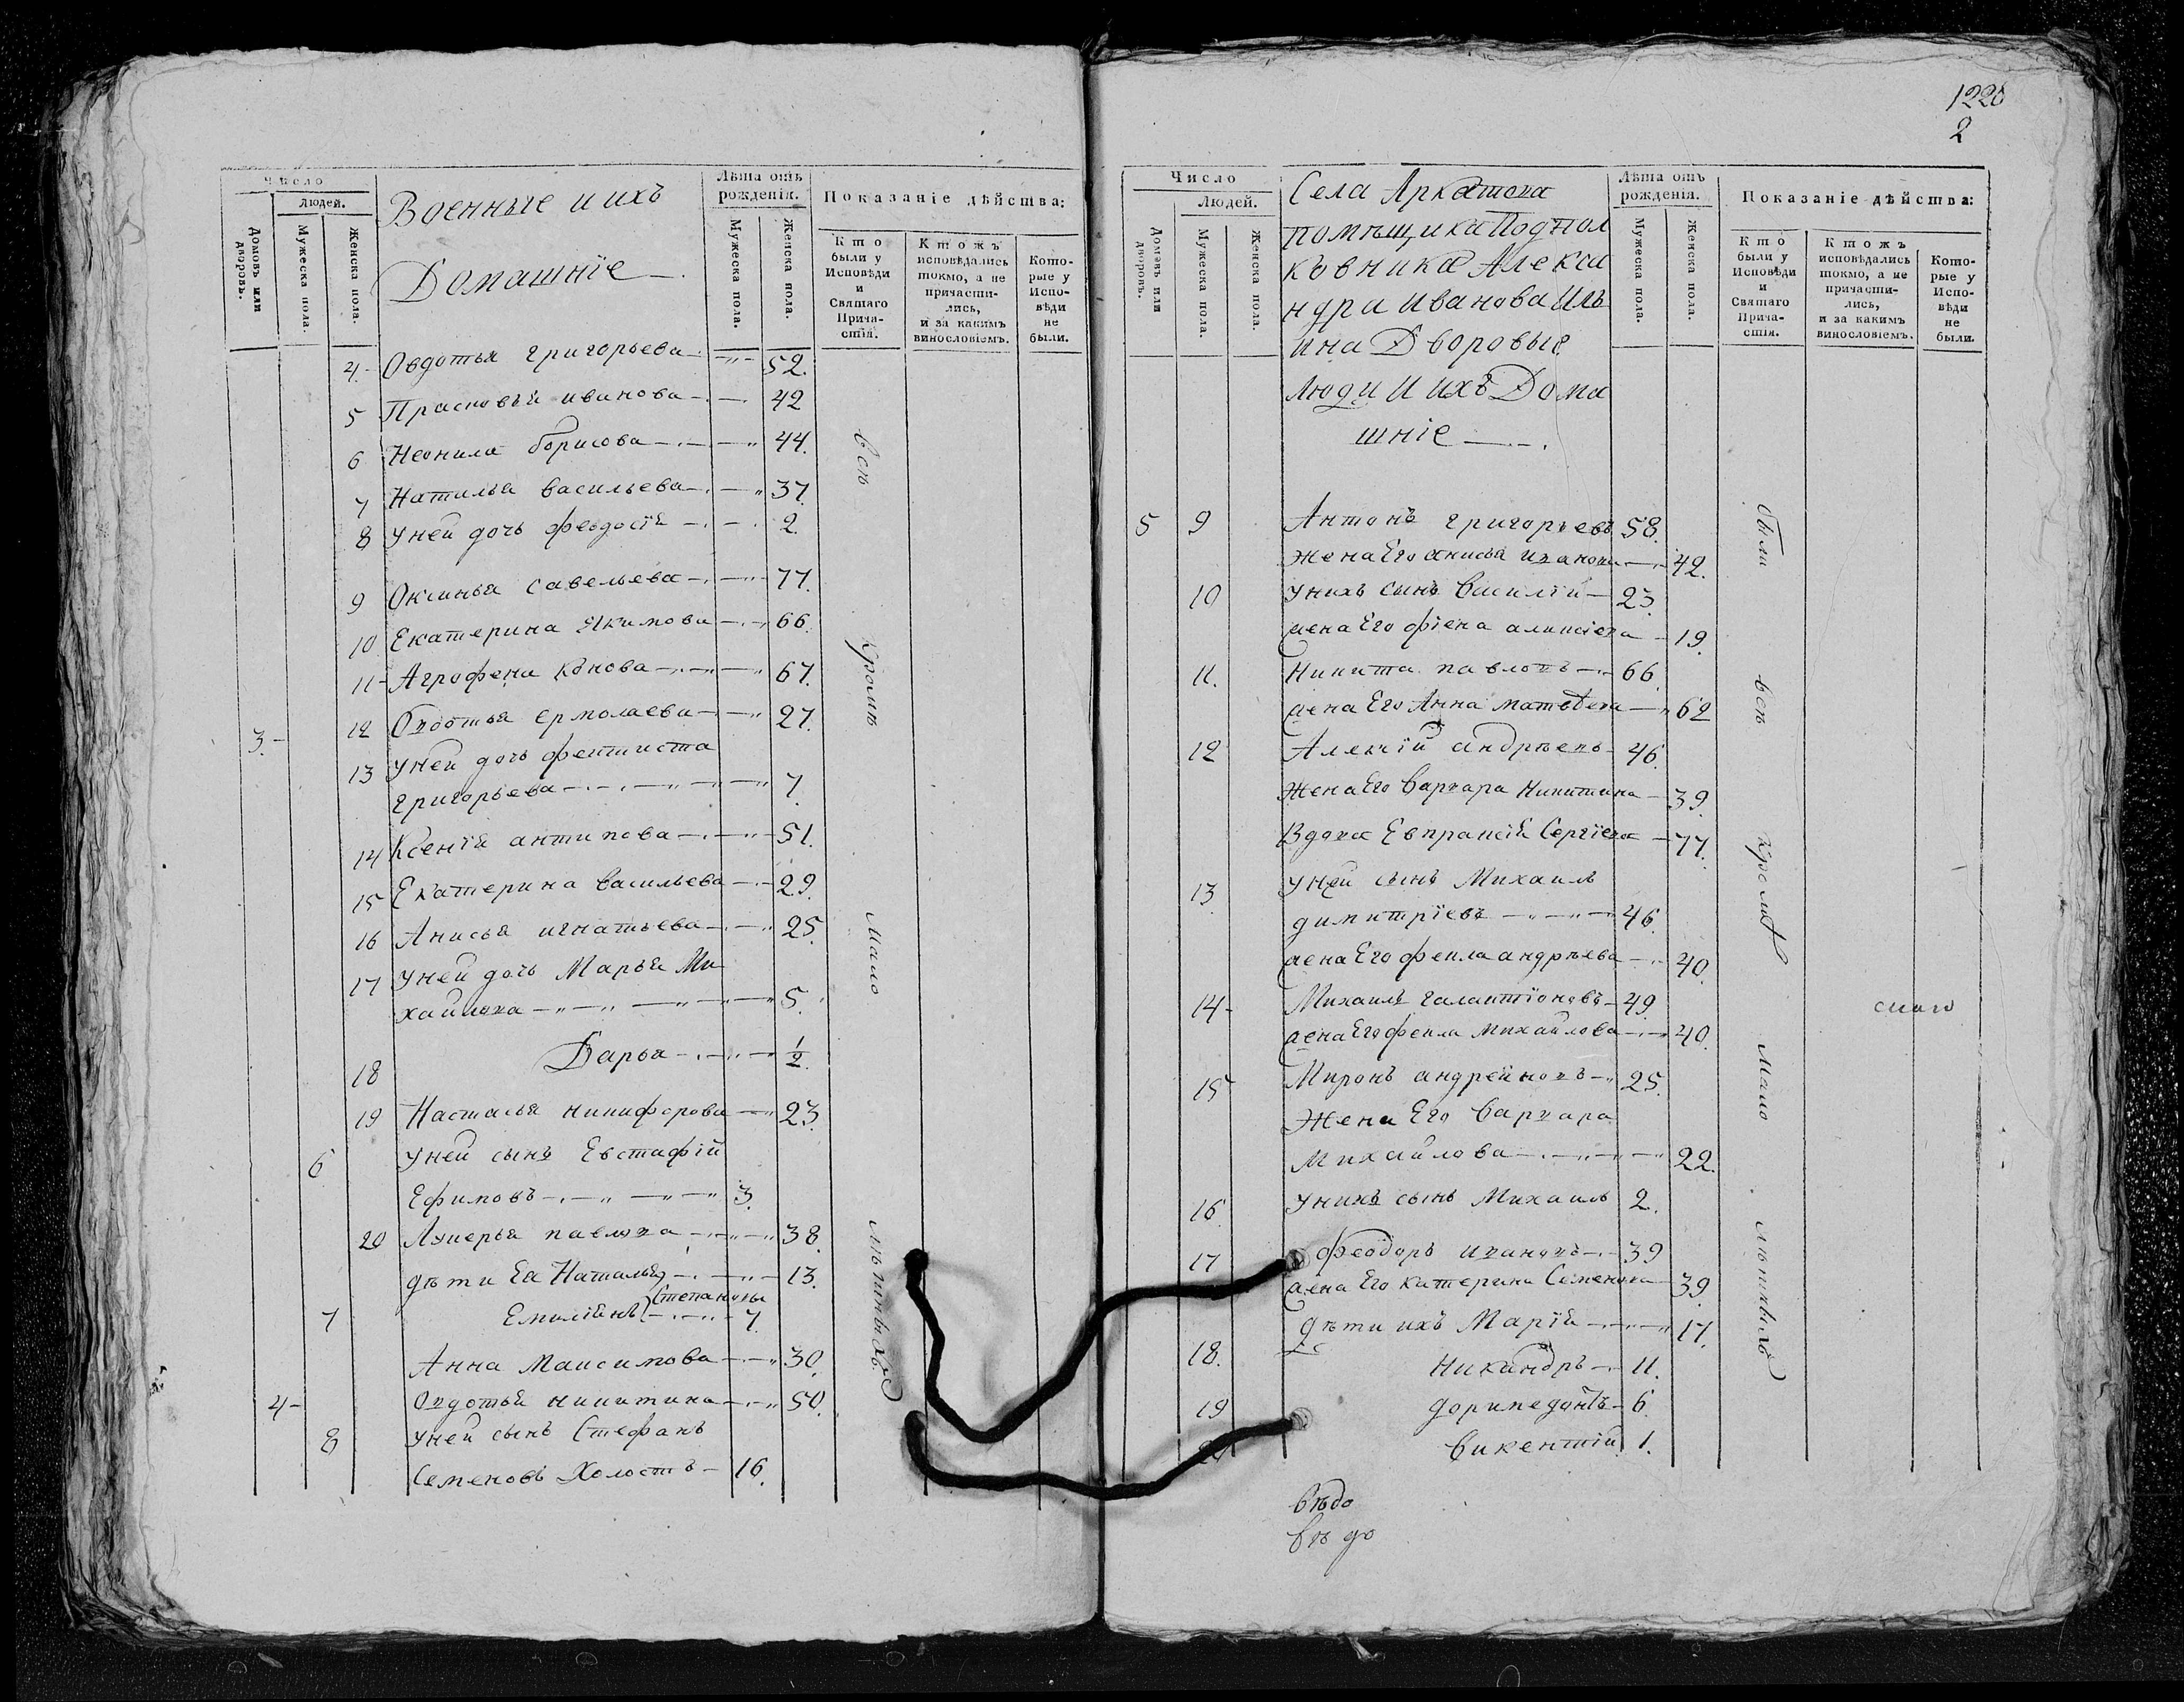 Число
людей.
Домовъ или дворовъ.
Мужеска пола.
Женска пола.
Военные и ихъ
Домашнїе
Лѣта отъ рожденїя.
Мужеска пола.
Женска пола.
Показанїе дѣйства:
Кто были у Исповѣди и Святаго Прича-стїя.
Ктожъ исповѣдались токмо, а не причасти-лись, и за какимъ винословїемъ.
Кото-рые у Испо-вѣди не были.
4 Овдотья григорьева 52.
5 Прасковья иванова 42
6 Неонила борисова 44.
7 Наталья васильева 37.
8 у ней дочь феодосїя 2.
9 Оксинья савельева 77.
10 Екатерина Якимова 66.
11 Аграфена 67.
3. 12 Овдотья ермолаева 27.
13 у ней дочь фетиниста
григорьева 7.
14 Ксенїя антипова 51.
15 Екатерина васильева 29.
16 Анисья игнатьева 25.
17 у ней дочь Марья Ми
хайлова 5.
18 Дарья 1/2.
19 Настасья никифорова 23.
6 у ней сынъ Евстафїй
Ефимовъ 3.
20 Лукерья павлова 38.
дѣти Ея Наталья 13.
Степановы
7 Емилїянъ 7.
Анна Максимова 30.
4 Овдотья никитина 50.
8 у ней сынъ Стефанъ
Семеновъ Холостъ 16.
всѣ
кромѣ
мало
лѣтныхъ
1220
2
Число
Людей.
Домовъ или дворовъ.
Мужеска пола.
Женска пола.
Села Аркатова
помѣщика Подпол
ковника Алекса
ндра иванова Иль
ина Дворовые
Люди И ихъ Дома
шнїе
Лѣта отъ рожденїя.
Мужеска пола.
Женска пола.
Показанїе дѣйства:
Кто были у Исповѣди и Святаго Прича-стїя.
Ктожъ исповѣдались токмо, а не причасти-лись, и за какимъ винословїемъ.
Кото-рые у Испо-вѣди не были.
5 9 Антонъ григорьевъ 58.
жена Его анисья иванова 42.
10 у нихъ сынъ Василїй 23.
жена Его алексїева 19.
11. Никита павловъ 66.
жена Его Анна матвѣева 62
12 Алексїй андрѣевъ 46.
жена Его Варвара Никитина 39.
Вдова Евпраксїя Сергїева 77.
13. у ней сынъ Михаилъ
димитрїевъ 46.
жена Его фекла андрѣева 40.
14 Михаилъ галактїоновъ 49.
жена Его фекла Михайлова 40.
15 Миронъ андрѣяновъ 25.
Жена Его Варвара
Михайлова 22.
16 у нихъ сынъ Михаилъ 2.
17 феодоръ ивановъ 39
жена Его катерина Семенова 39.
дѣти ихъ Марїя 17.
18. Никандръ 11.
19 доримедонтъ 6.
20 викентїй 1.
были
всѣ
кромѣ
мало
лѣтныхъ
вѣдо
вѣ до